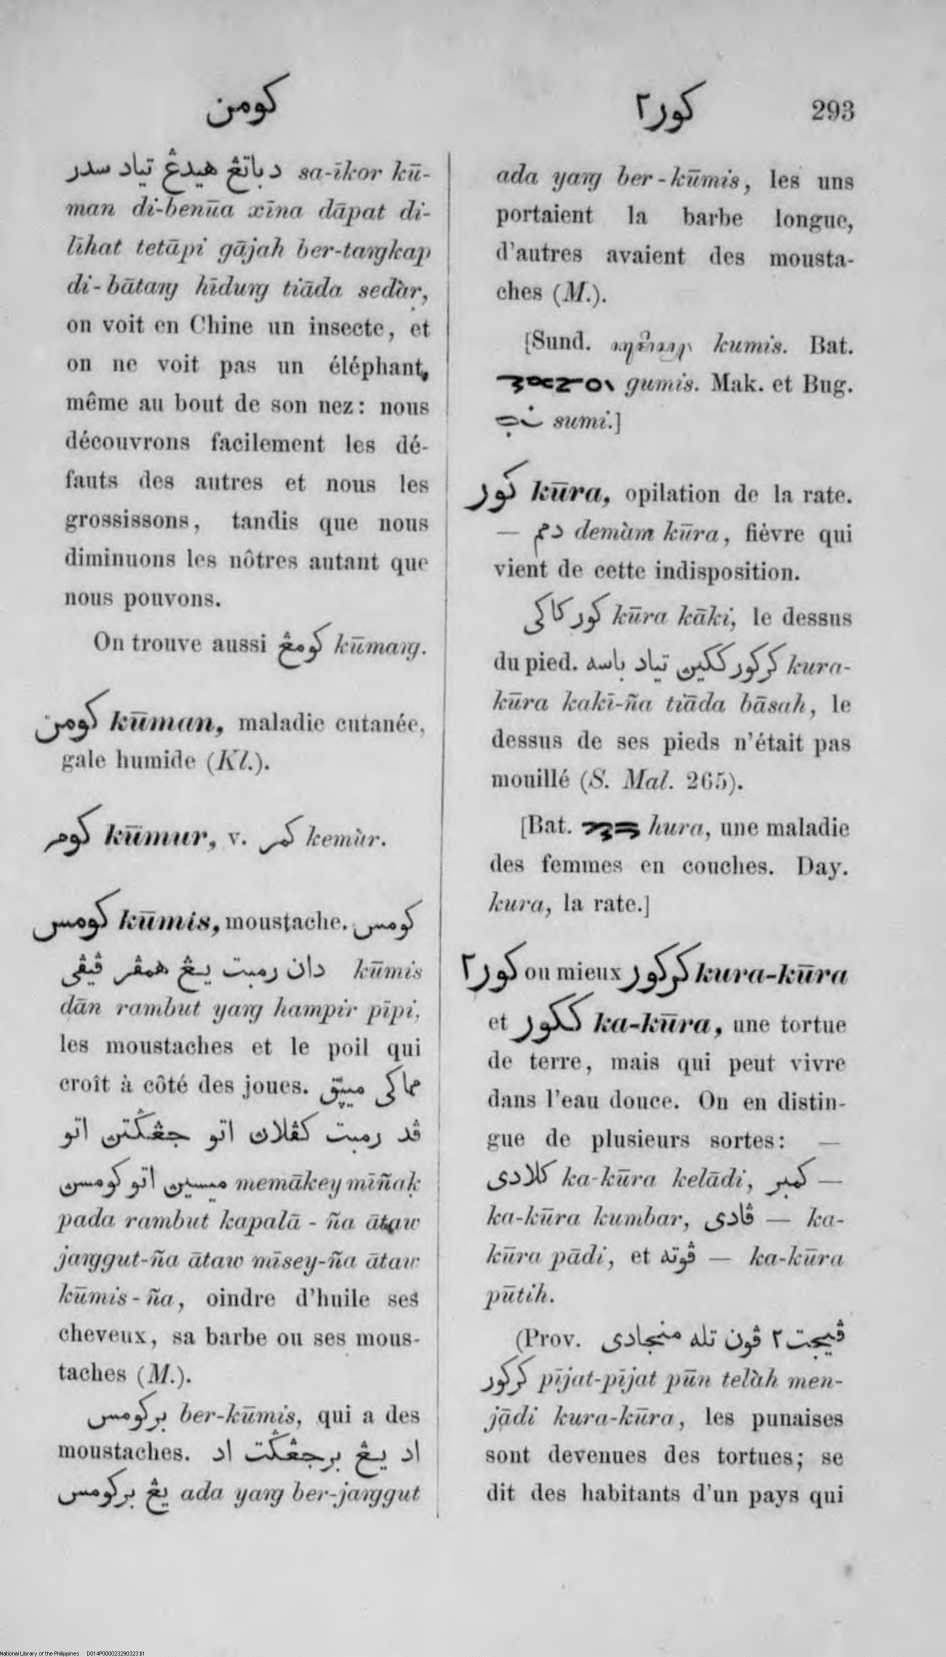 كومن
كور٢ 293
دباتڠ هيدڠ تياد سدر sa-īkor kū-
man di-benūa xīna dāpat di-
līhat tetāpi gājah ber-taŋkap
di-bātaŋ hīduŋ tiāda sedàr,
on voit en Chine un insecte, et
on ne voit pas un éléphant,
même au bout de son nez: nous
découvrons facilement les dé-
fauts des autres et nous les
grossissons, tandis que nous
diminuons les nôtres autant que
nous pouvons.
On trouve aussi كومڠ kūmaŋ.
كومن kūman, maladie cutanée,
gale humide (Kl.).
كومر kūmur, v. كمر kemùr.
كومس kūmis, moustache. كومس
دان رمبت يڠ همڤر ڤيڤي kūmis
dān rambut yaŋ hampir pīpi,
les moustaches et le poil qui
croît à côté des joues. مماكى ميڽق
ڤد رمبت كڤلاڽ اتو جڠݢتڽ اتو
ميسيڽ اتو كومسڽ memākey mīñak
pada rambut kapalā-ña ātaw
jaŋgut-ña ātaw mīsey-ña ātaw
kūmis-ña, oindre d'huile ses
cheveux, sa barbe ou ses mous-
taches (M.).
بركومس ber-kūmis, qui a des
moustaches. اد يڠ برجڠݢت اد
يڠ بركومس ada yaŋ ber-jaŋgut
ada yaŋ ber-kūmis, les uns
portaient la barbe longue,
d'autres avaient des mousta-
ches (M.).
[Sund. kumis. Bat.
gumis. Mak. et Bug.
sumi.]
كور kūra, opilation de la rate.
— دمم demàm kūra, fièvre qui
vient de cette indisposition.
كور كاكى kūra kāki, le dessus
du pied. كركور ككيڽ تياد باسه kura-
kūra kakī-ña tiāda bāsah, le
dessus de ses pieds n'était pas
mouillé (S. Mal. 265).
[Bat. hura, une maladie
des femmes en couches. Day.
kura, la rate.]
كور٢ ou mieux كركور kura-kūra
et ككور ka-kūra, une tortue
de terre, mais qui peut vivre
dans l'eau douce. On en distin-
gue de plusieurs sortes: —
كلادى ka-kūra kelādi, كمبر —
ka-kūra kumbar, ڤادى — ka-
kūra pādi, et ڤوته — ka-kūra
pūtih.
(Prov. ڤيجت٢ ڤون تله منجادى
كركور pījat-pījat pūn telàh men-
jādi kura-kūra, les punaises
sont devenues des tortues; se
dit des habitants d'un pays qui
National Library of the Philippines